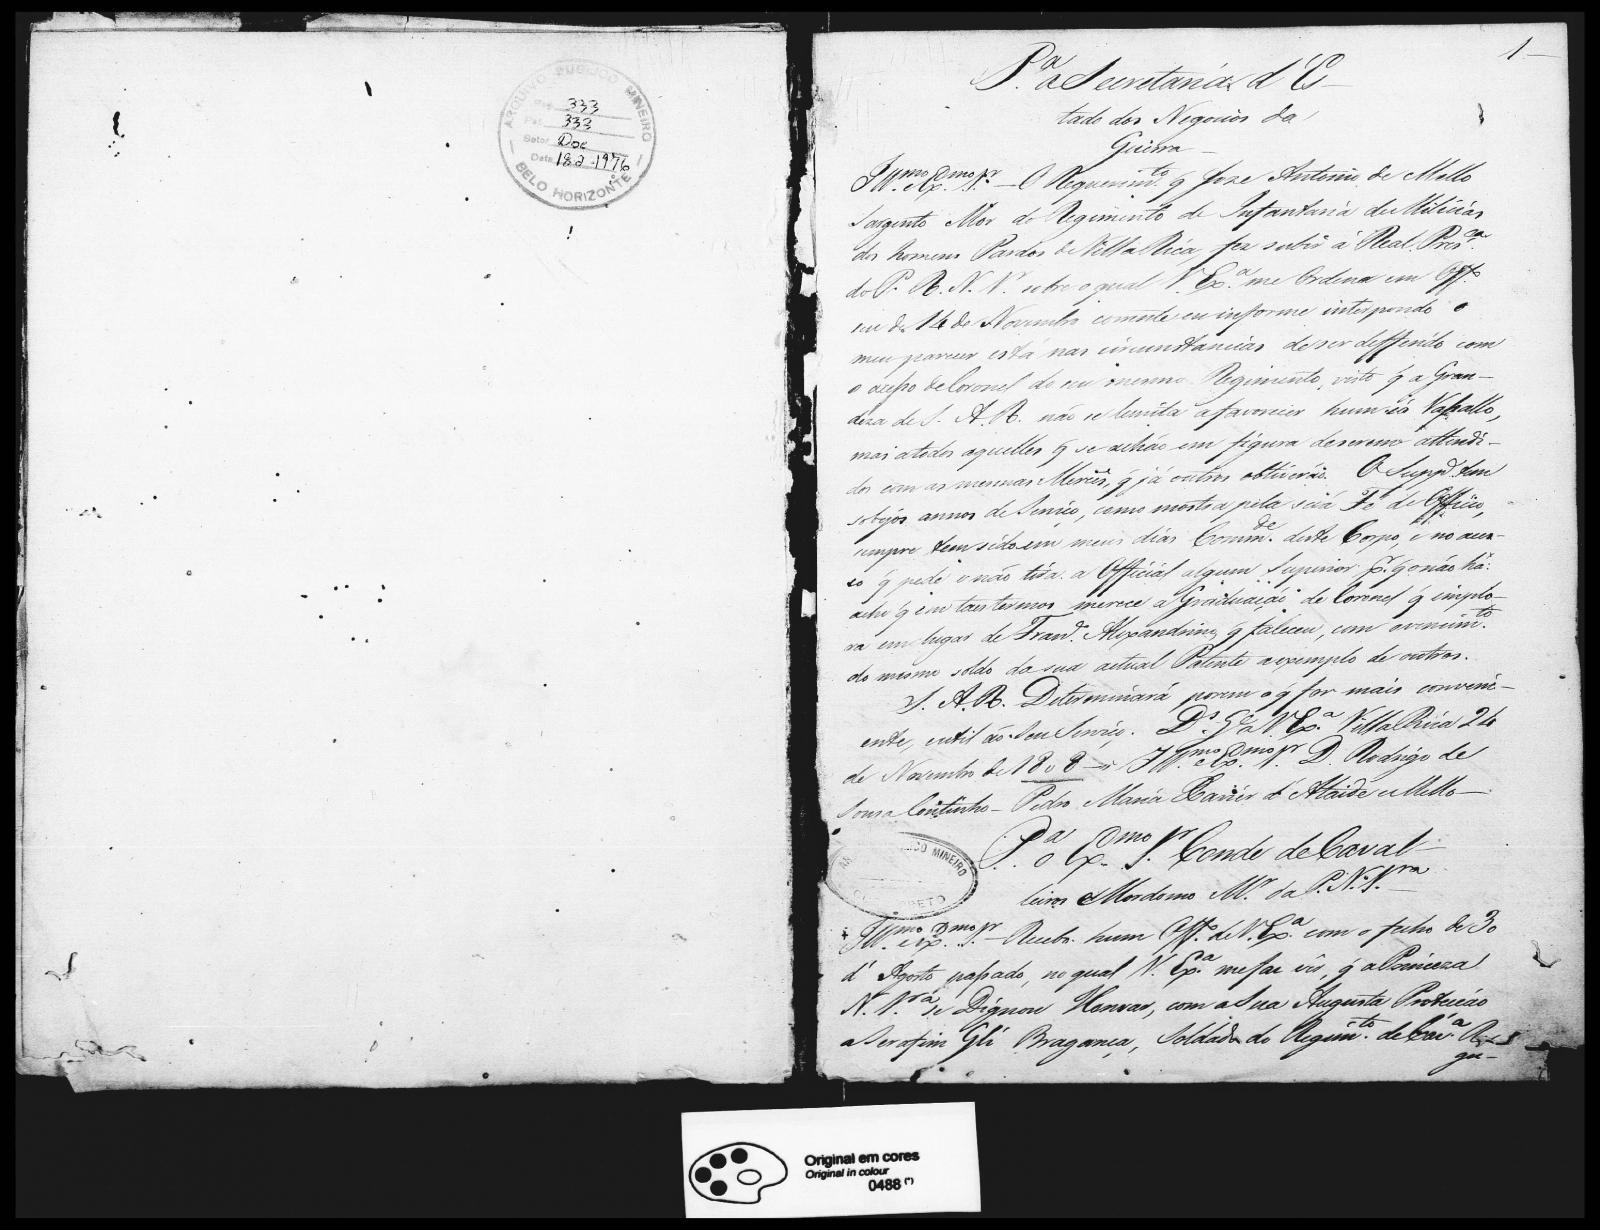 ARQUIVO PUBLICO MINEIRO
333
Pat. 333
Setor Doc
Data 18-2-1976
BELO HORIZONTE
1
P.ª a Secretaria d'Es-
tado dos Negocios da
Guerra
Ill.mo e Ex.mo S.r — O Requerim.to q̃ Joze Antonio de Mello
Sargento Mor do Regimento de Infantaria de Milicias
dos homens Pardos de Villa Rica fez subir á Real Pres.ca
do P. R. N. S.r sobre o qual V. Ex.ª me Ordena em Off.º
seu de 14 de Novembro corrente eu informe interpondo o
meu parecer está nas circunstancias de ser defferido com
o acesso de Coronel do seu mesmo Regimento, visto q̃ a Gran-
deza de S. A. R. não se limita a favorecer hum só Vassallo,
mas a todos aquelles q̃ se achão em figura de serem attendi-
dos com as mesmas Mercês, q̃ já outros obtiverão. O Supp.e tem
sobejos annos de Serviço, como mostra pela sua Fé de Officio,
sempre tem sido em meus dias Comm.de deste Corpo, e no aces-
so q̃ pede o não tira a Official algum Superior p.r q̃ o não há:
acho q̃ em taes termos merece a Graduação de Coronel q̃ implo-
ra em lugar de Fran.co Alexandrino, q̃ faleceu, com o vencim.to
do mesmo soldo da sua actual Patente a exemplo de outros.
S. A. R. Determinará porem o q̃ for mais conveni-
ente, e util ao Seu Serviço. D.s G.e a V. Ex.ª Villa Rica 24
de Novembro de 1808 — Ill.mo e Ex.mo S.r D. Rodrigo de
Sousa Coutinho — Pedro Maria Xavier d'Ataide e Mello —
P.ª o Ex.mo S.r Conde de Caval-
leiros Mordomo M.r da P. N. S.ra
MINEIRO
PRETO
Ill.mo e Ex.mo S.r — Recebi hum Off.º de V. Ex.ª com o fecho de 30
d'Agosto passado, no qual V. Ex.ª me faz vêr, q̃ a Princeza
N. S.rª se Dignou Honrar, com a Sua Augusta Protecção
a Serafim Bragança, Soldado do Regim.to de Cav.ª Re-
gu-
Original em cores
Original in colour
0488 (*)